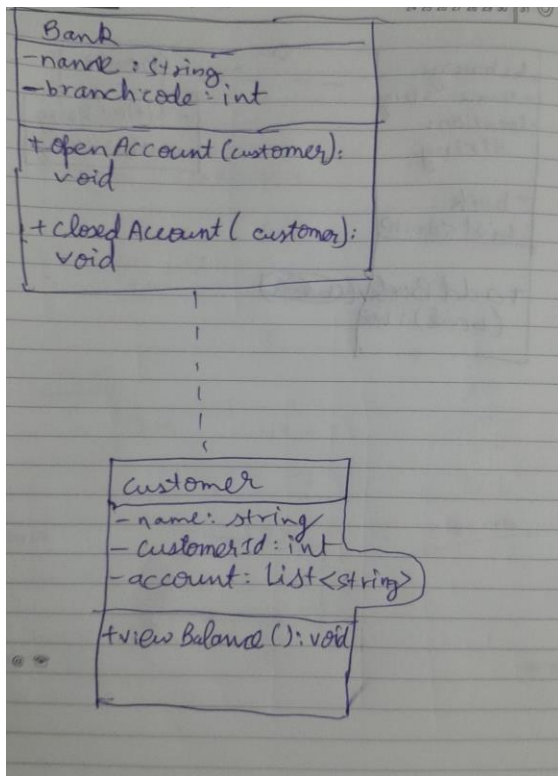 Bank
-name: string
-branchcode: int
+openAccount(customer):
void
+closedAccount( customer):
void
customer
-name: string
- customerId: int
-account: List<string>
+viewBalance(): void